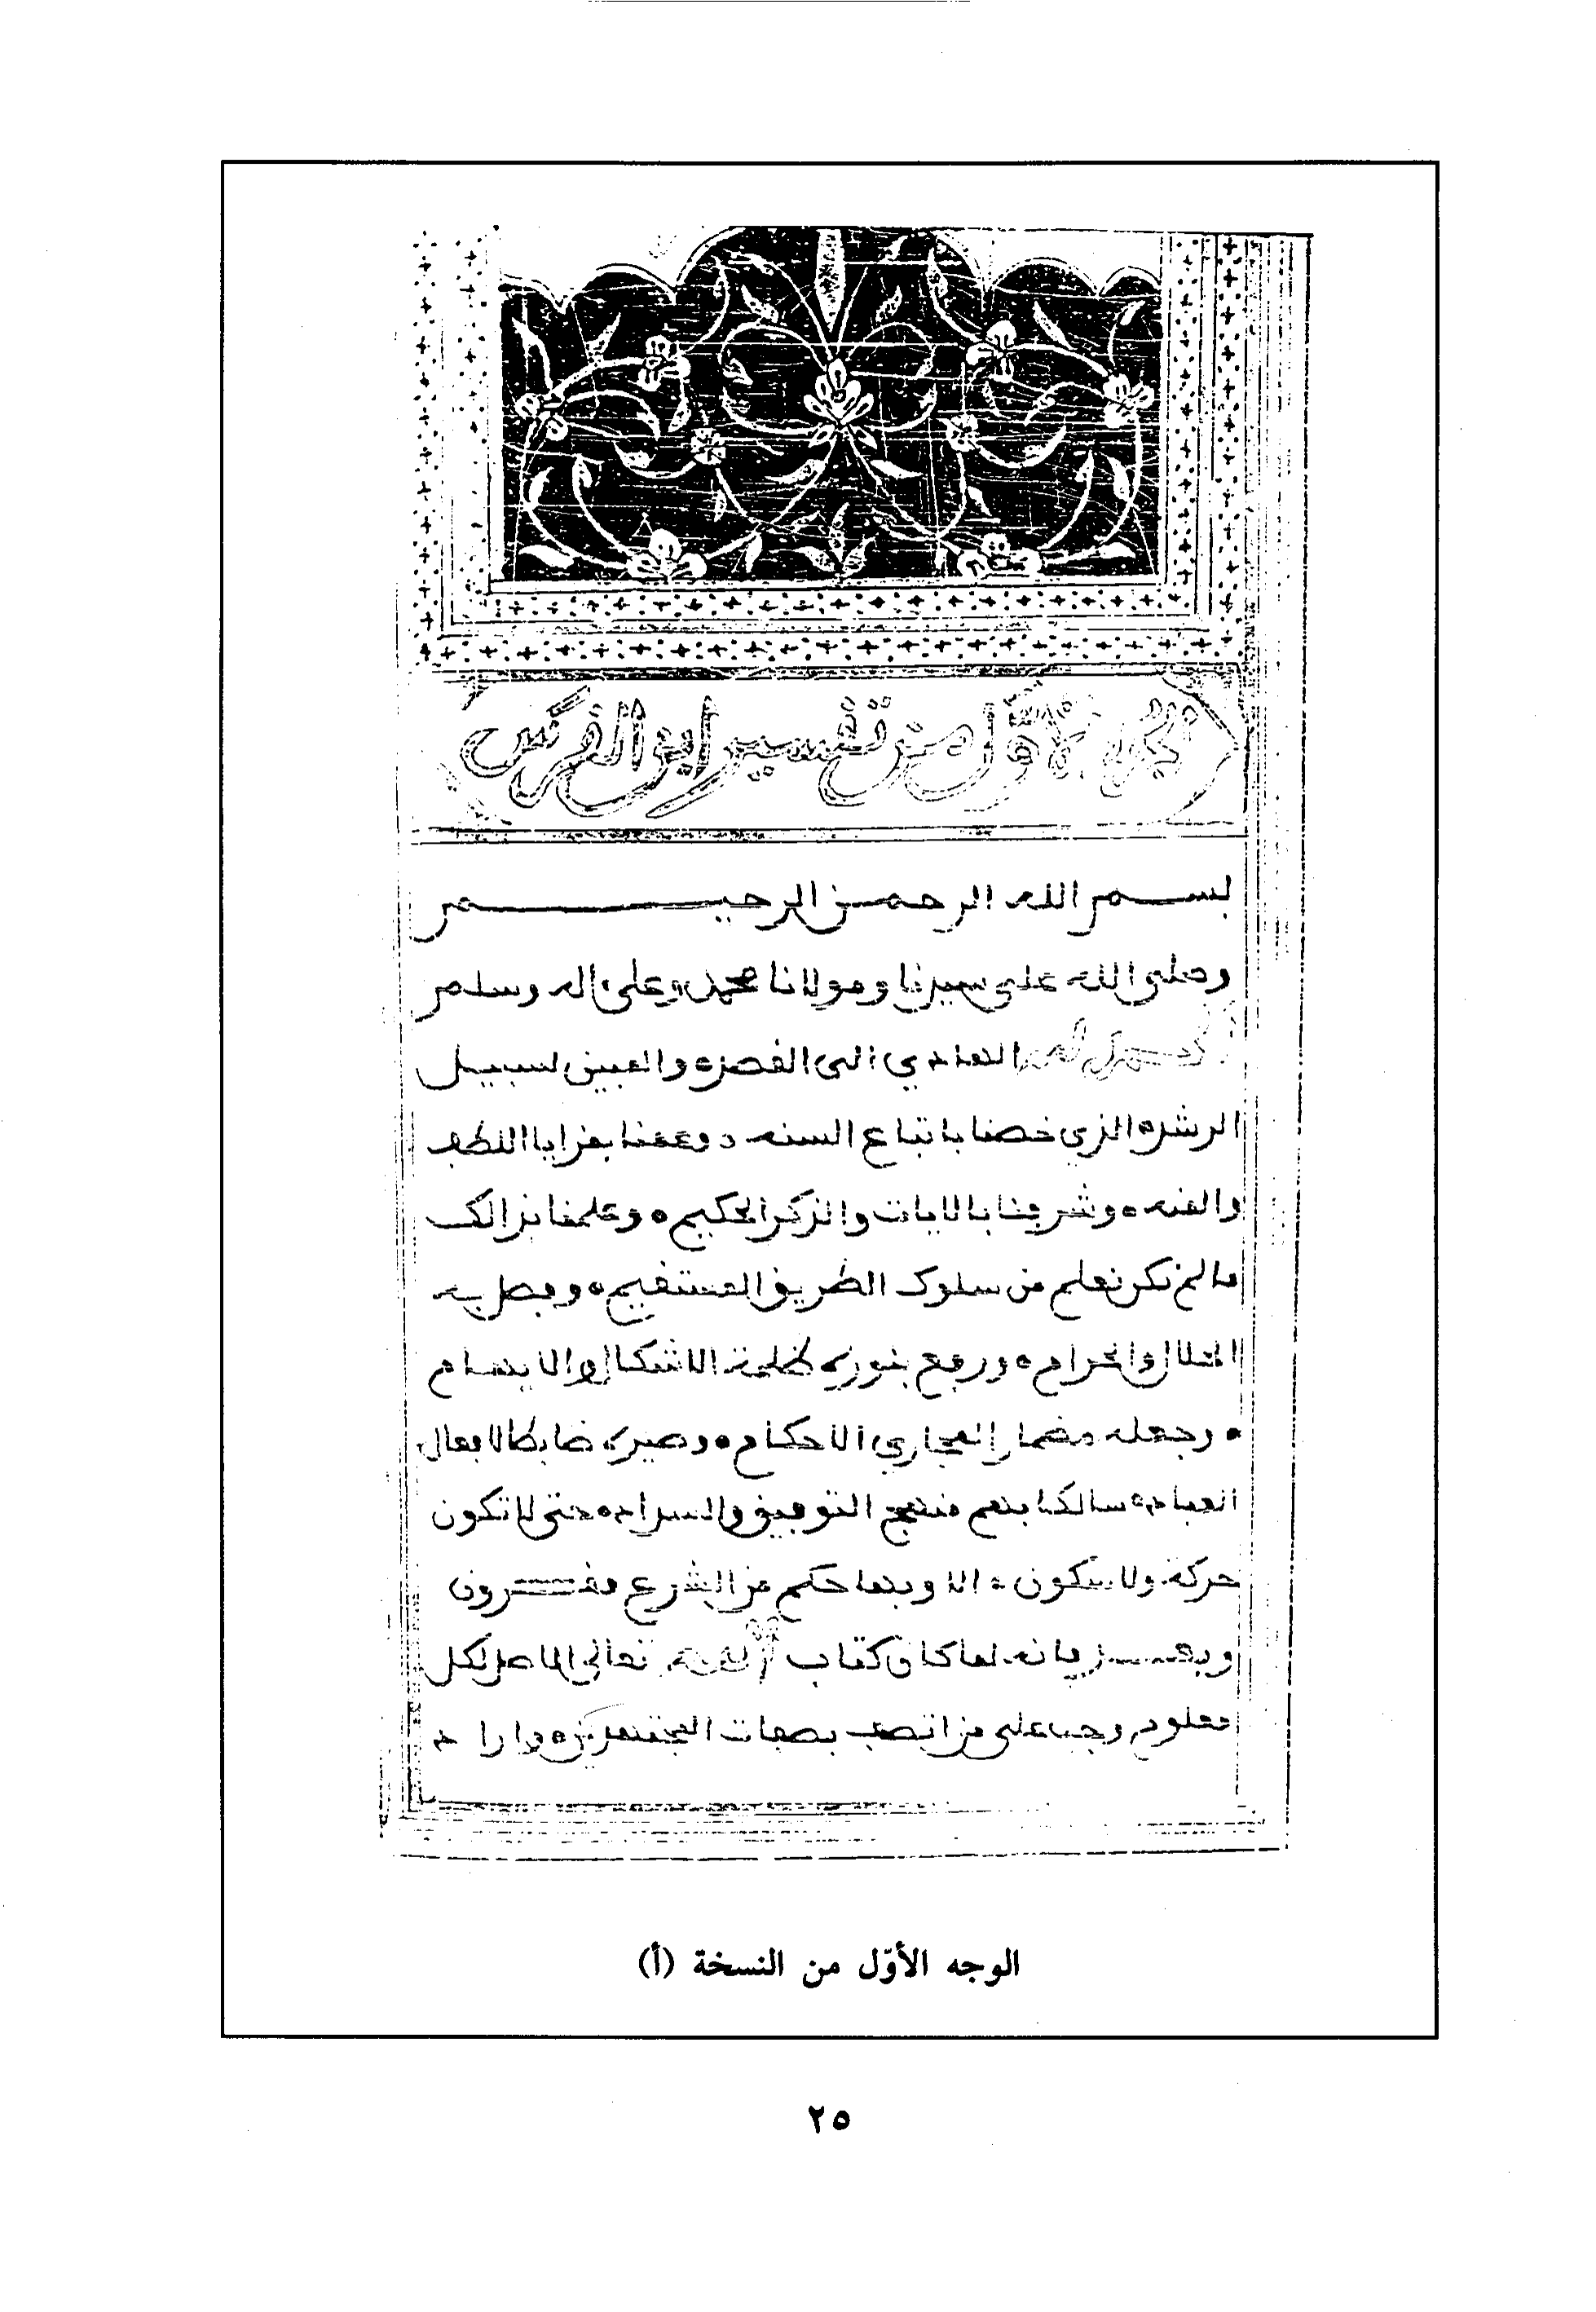 الجزء الأول من تفسير ابن الفرس
بسم الله الرحمن الرحيم
وصلى الله على سيدنا ومولانا محمد وعلى اله وسلم
الحمد لله الهادي الى القصد والمبين لسبيل
الرشد الذي خصنا باتباع السنه وعمنا بمزايا اللطف
والمنه وشرفنا بالايات والذكر الحكيم وعلمنا بذالك
مالم نكن نعلم من سلوك الطريق المستقيم وفصل به
الحلال والحرام ورفع بنوره ظلمة الاشكال والابهام
وجعله مضمار المجاري الاحكام وصيره ضابطا لافعال
العباد سالكا بهم منهج التوفيق والسداد حتى لا تكون
حركة ولا سكون الا وبها حكم من الشرع مقرون
وبعد فانه لما كان كتاب الله تعالى الماصل لكل
معلوم وجب على من اتصف بصفات المجتهدين واراد
الوجه الأوّل من النسخة (أ)
٢٥